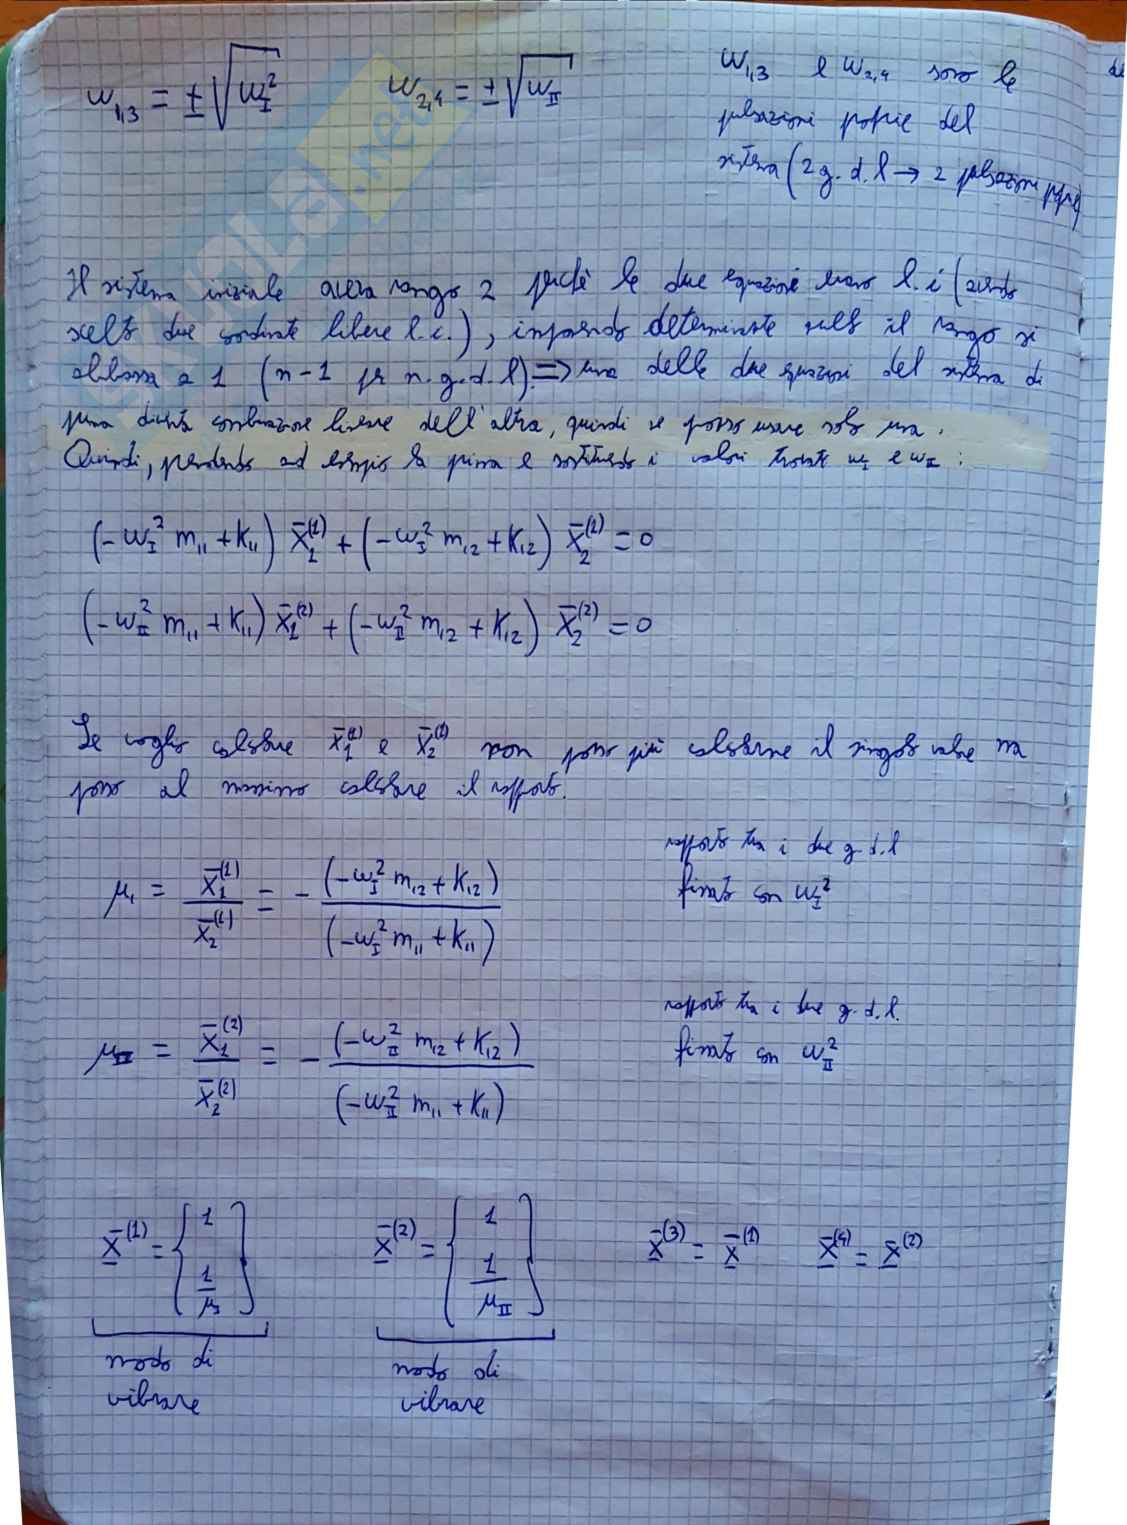 ω₁,₃ = ±√ω_I²    ω₂,₄ = ±√ω_II
ω₁,₃ e ω₂,₄ sono le
pulsazioni proprie del
sistema (2 g.d.l → 2 pulsazioni proprie)
SKUOLA.net
Il sistema iniziale aveva rango 2 perché le due equazioni erano l.i (avendo
scelto due coordinate libere l.i.), imponendo determinante nullo il rango si
abbassa a 1 (n-1 per n.g.d.l) ⇒ una delle due equazioni del sistema di
prima diventa combinazione lineare dell'altra, quindi se posso usare solo una.
Quindi, prendendo ad esempio la prima e sostituendo i valori trovati ω_I e ω_II :
(-ω_I² m₁₁ + K₁₁) X̄₁⁽¹⁾ + (-ω_I² m₁₂ + K₁₂) X̄₂⁽¹⁾ = 0
(-ω_II² m₁₁ + K₁₁) X̄₁⁽²⁾ + (-ω_II² m₁₂ + K₁₂) X̄₂⁽²⁾ = 0
Se voglio calcolare X̄₁⁽¹⁾ e X̄₂⁽¹⁾ non posso più calcolarne il singolo valore ma
posso al massimo calcolare il rapporto.
μ₁ = X̄₁⁽¹⁾ / X̄₂⁽¹⁾ = - (-ω_I² m₁₂ + K₁₂) / (-ω_I² m₁₁ + K₁₁)
rapporto tra i due g.d.l
fissato con ω_I²
μ_II = X̄₁⁽²⁾ / X̄₂⁽²⁾ = - (-ω_II² m₁₂ + K₁₂) / (-ω_II² m₁₁ + K₁₁)
rapporto tra i due g.d.l.
fissato con ω_II²
X̲̄⁽¹⁾ = {1, 1/μ_I}    X̲̄⁽²⁾ = {1, 1/μ_II}    X̲̄⁽³⁾ = X̲̄⁽¹⁾    X̲̄⁽⁴⁾ = X̲̄⁽²⁾
modo di    modo di
vibrare    vibrare